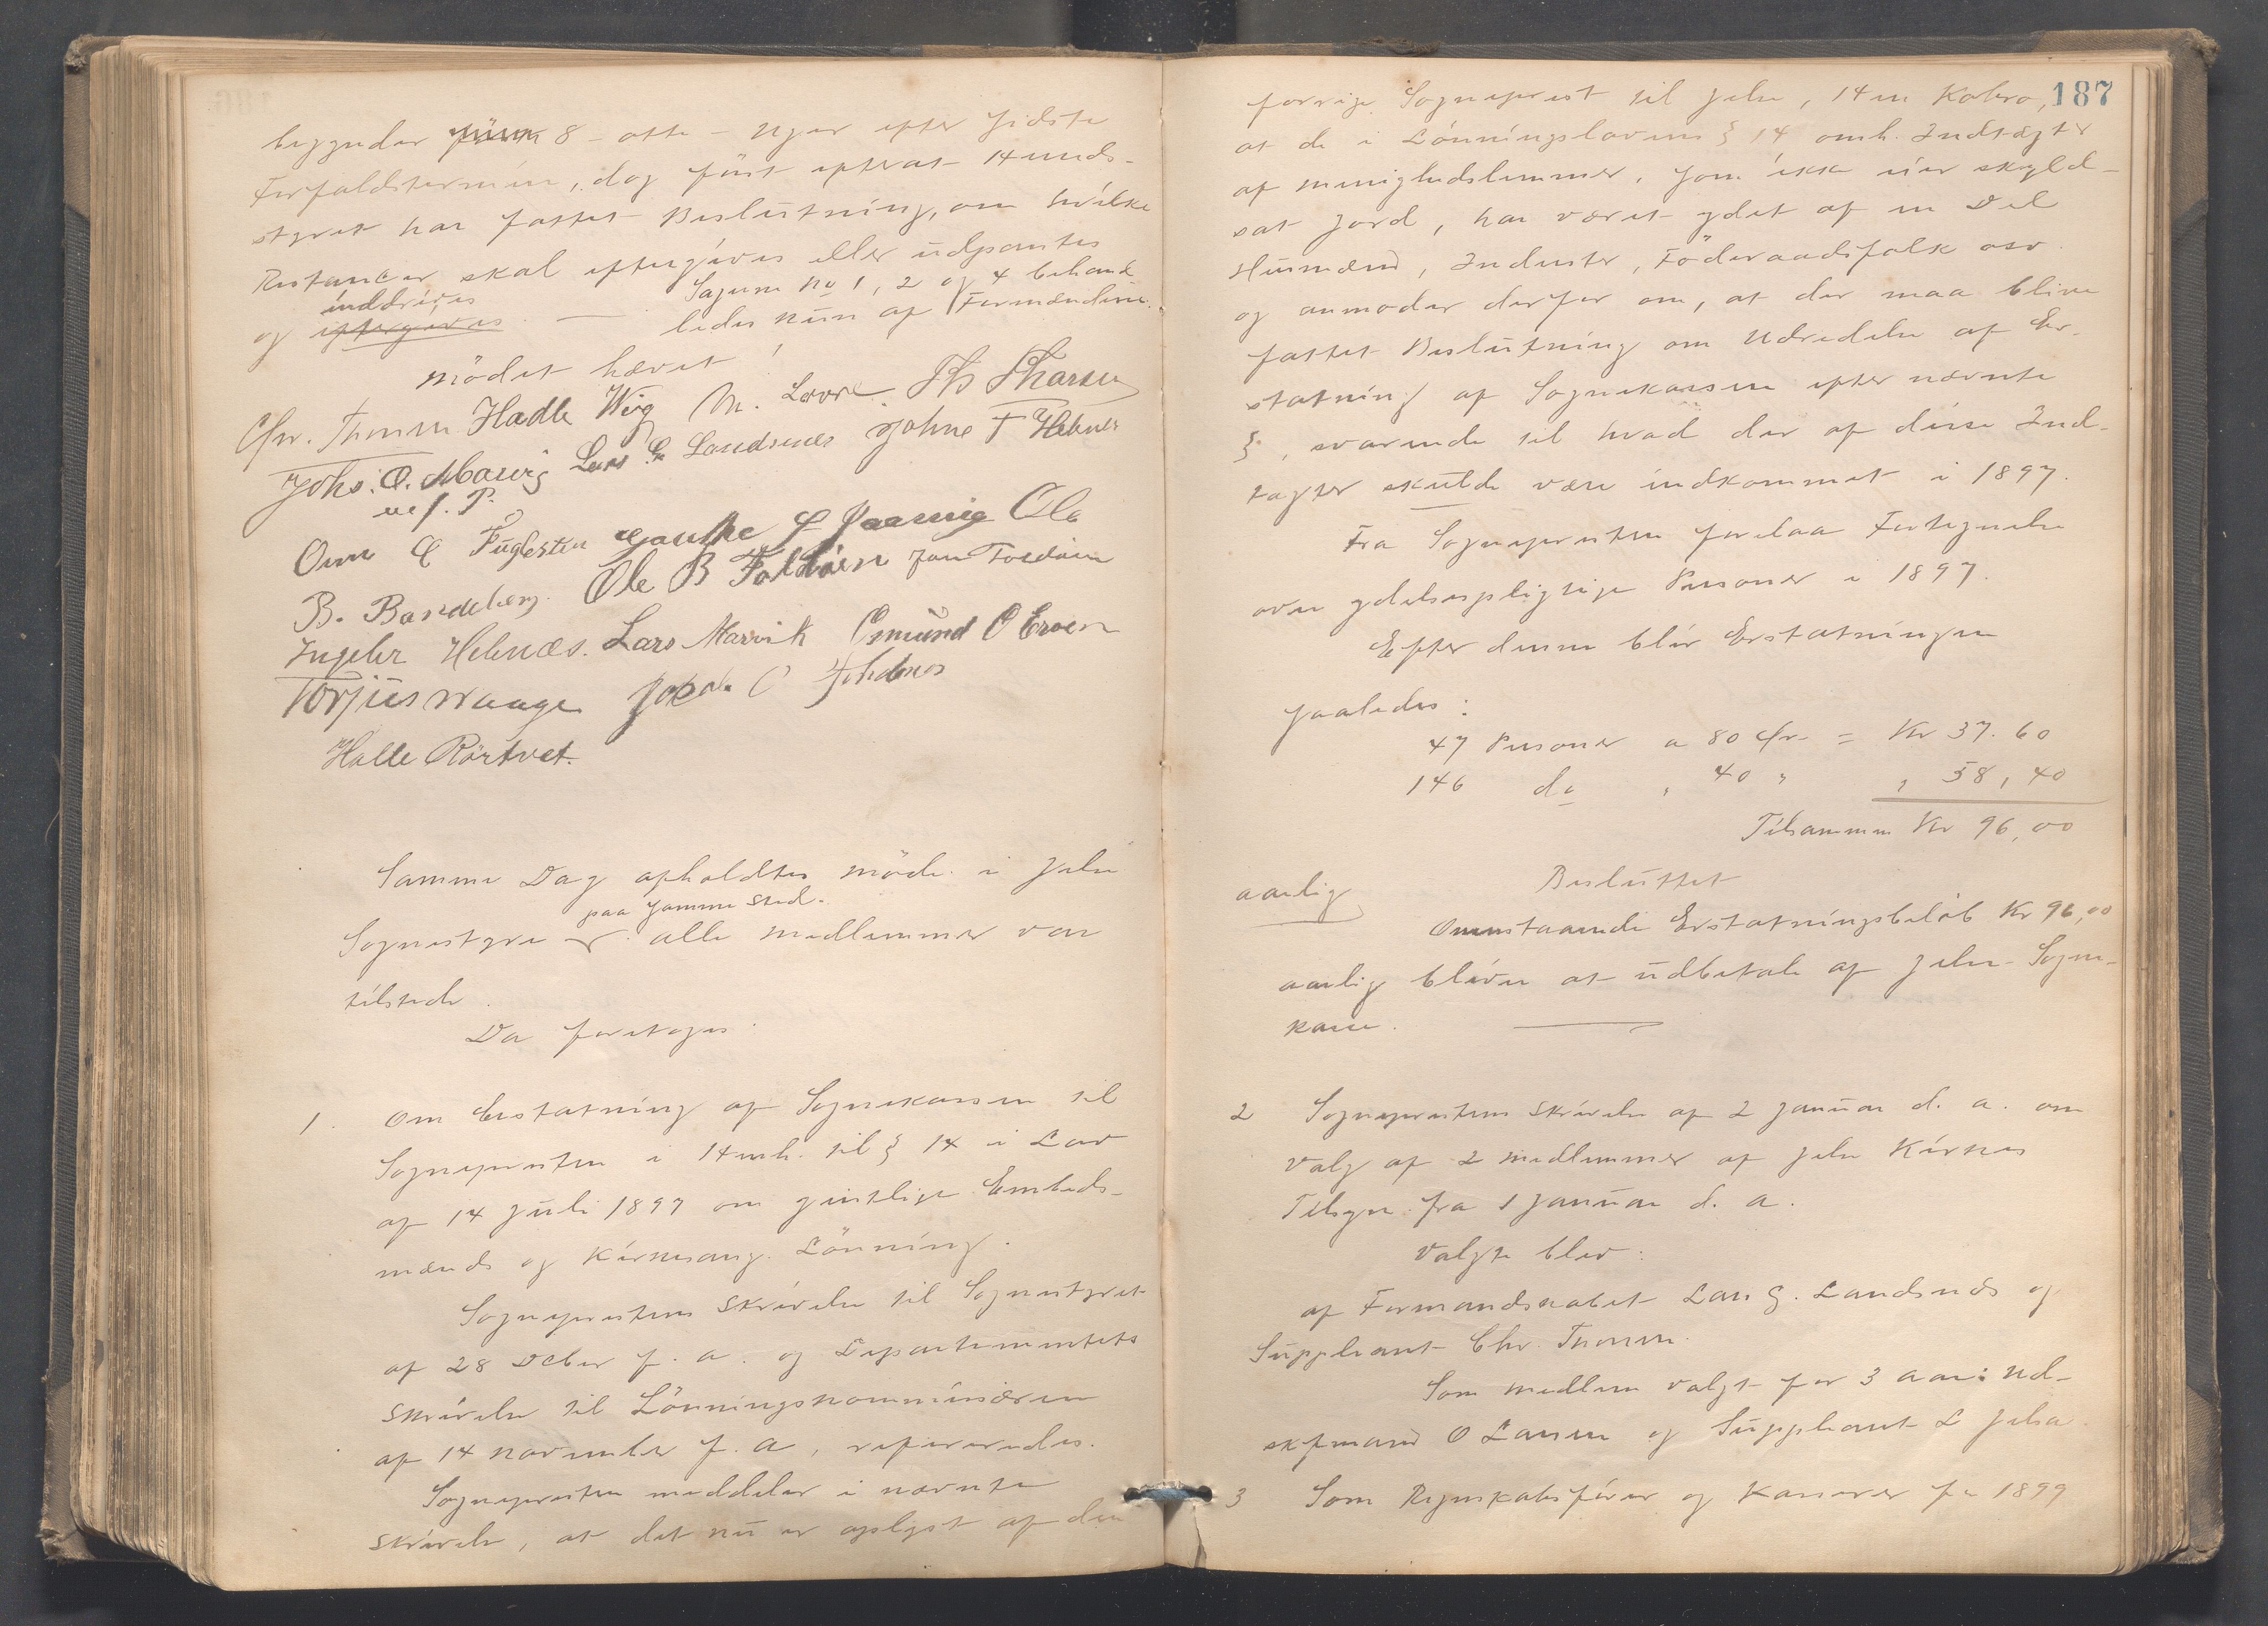 begynder 8 - otte - Uger efter sidste
Forfaldstermin, dog först efterat Hereds-
styret har fattet Beslutning, om hvilke
Restancer skal eftergives eller udpantes
og inddrives eftergives — Sagerne No 1, 2 og 4 behand
ledes kun af Formændene.
Mödet hævet!
Chr. Thorsen Hadle Wiig M. Lovra Th Tharsen
Johs. O. Marvig Lars G. Landsnes Johne T Hebnes
m. f. P.
Omn E Fuglesten Gauthe G Paaraig Ole
B. Bandeberg. Ole B Foldöen Jon Foldöen
Ingebr Hebnæs. Lars Marvik Osmund O Eroen
Torjus Waage Jokob O Hebnes
Halle Rörtvet.
Samme Dag afholdtes Möde i Jelse
Sognestyre paa samme Sted. alle Medlemmer var
tilstede.
Da foretoges:
1. Om Erstatning af Sognekassen til
Sognepresten i Henh. til § 14 i Lov
af 14 Juli 1897 om geistlige Embeds-
mænds og Kirkesang. Lönning.
Sogneprestens Skrivelse til Sognestyret
af 28 Dcber f. a. og Departementets
Skrivelse til Lönningskommissæren
af 14 November f. a, refereredes.
Sognepresten meddeler i nævnte
Skrivelse, at det nu er oplyst af den
187
forrige Sogneprest til Jelse, Hr Kobro,
at de i Lönningslovens § 14 omh. Indtægter
af Menighedslemmer, som ikke eier skyld-
sat Jord, har været ydet af en Del
Husmænd, Inderster, Föderaadsfolk osv.
og anmoder derfor om, at der maa blive
fattet Beslutning om Udredelse af Er-
statning af Sognekassen efter nævnte
§, svarende til hvad der af disse Ind-
tægter skulde være indkommet i 1897.
Fra Sognepresten forelaa Fortegnelse
over ydelsespligtige Personer i 1897.
Efter denne blir Erstatningen
saaledes:
47 Personer a 80 Ör = Kr 37.60
146 do " 40 " " 58,40
Tilsammen Kr 96,00
aarlig
Besluttet
Ovenstaaende Erstatningsbelöb Kr 96,00
aarlig bliver at udbetale af Jelse Sogne-
kasse.
2 Sogneprestens Skrivelse af 2 Januar d. a. om
Valg af 2 Medlemmer af Jelse Kirkes
Tilsyn fra 1 Januar d. a.
Valgte blev:
af Formandskabet Lars G. Landsnæs og
Suppleant Chr. Thorsen.
Som Medlem valgt for 3 Aar: Ud-
skfmand O Larsen og Suppleant L Jelsa.
3 Som Regnskabsförer og Kasserer for 1899